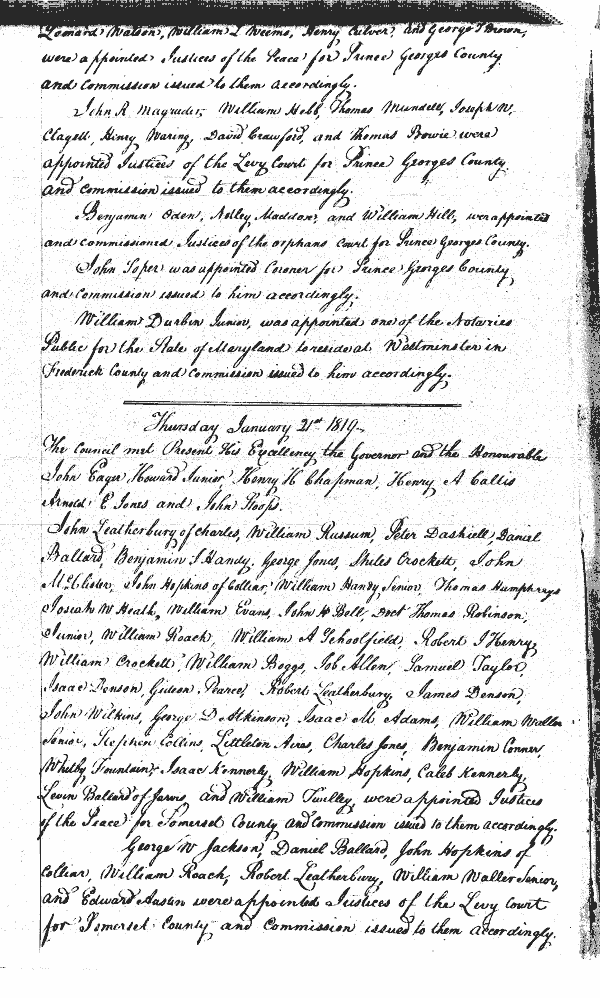 Leonard Watson, William L Weems, Henry Culver, and George T Brown,
were appointed Justices of the Peace for Prince Georges County
and commission issued to them accordingly.
John R. Magruder, William Hebb, Thomas Mundell, Joseph W.
Clagett, Henry Waring, David Crawford, and Thomas Bowie were
appointed Justices of the Levy Court for Prince Georges County
and commission issued to them accordingly.
Benjamin Oden, Notley Maddox, and William Hill, were appointed
and commissioned Justices of the orphans Court for Prince Georges County.
John Soper was appointed Coroner for Prince Georges County
and commission issued to him accordingly.
William Durbin Junior, was appointed one of the Notaries
Public for the State of Maryland to reside at Westminster in
Frederick County and commission issued to him accordingly.
Thursday January 21st 1819.
The Council met Present His Excellency the Governor and the Honourable
John Eager Howard Junior Henry H Chapman, Henry A Callis
Arnold E Jones and John Stoops.
John Leatherbury of Charles, William Russum, Peter Daskiell, Daniel
Ballard, Benjamin I Handy, George Jones, Crockett, John
John Hopkins of Colliar William Handy Senior, Thomas Humphreys
Josiah W Heath, William Evans, John H Bell, Doct Thomas Robinson,
Junior, William Roach, William A Schoolfield, Robert J Henry,
William Crockett, William Boggs, Job Allen, Samuel Taylor,
Isaac Denson, Gideon Pearce, Robert Leatherbury, James Denson,
John Wilkins, George D Atkinson, Isaac M Adams, William Waller
Senior, Stephen Collins, Littleton Aires, Charles Jones, Benjamin Conner,
Whitby Fountain, Isaac Kennerly, William Hopkins, Caleb Kennerly,
Levin Ballard of Jarvis, and William Twilley, were appointed Justices
of the Peace for Somerset County and commission issued to them accordingly.
George W Jackson, Daniel Ballard, John Hopkins of
Colliar, William Roach, Robert Leatherbury, William Waller Senior,
and Edward Austin were appointed Justices of the Levy Court
for Somerset County and Commission issued to them accordingly.